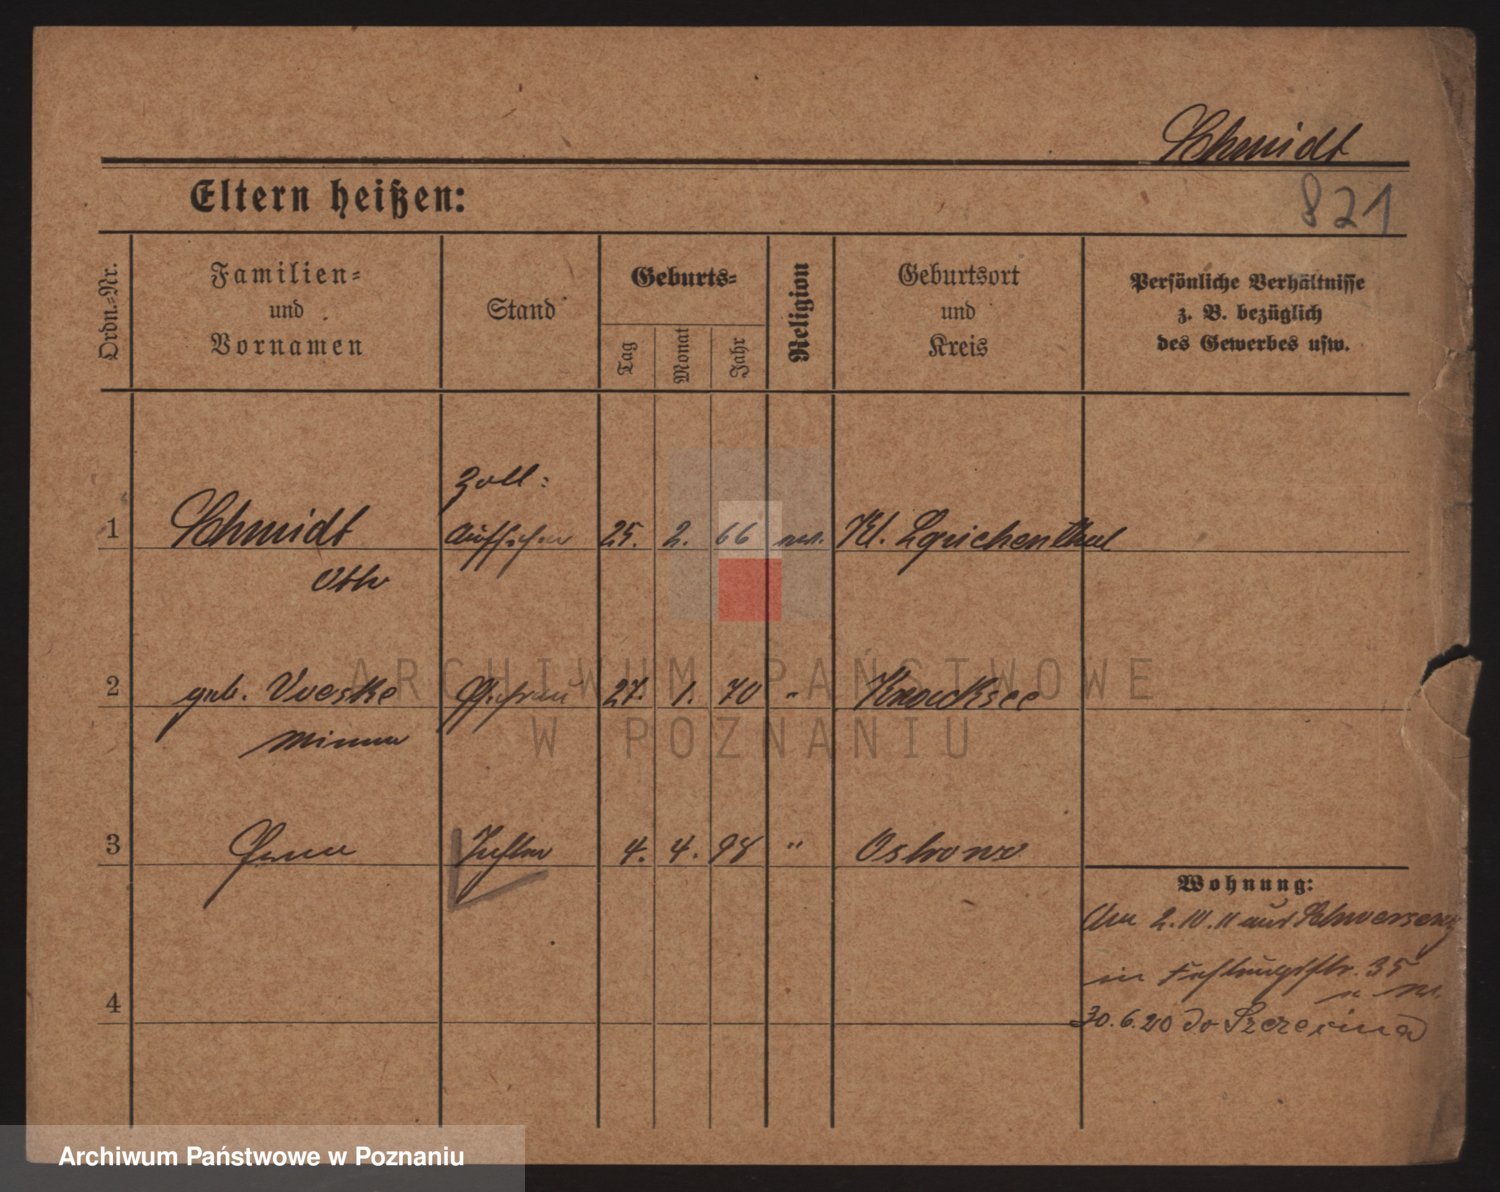 Schmidt
821
Eltern heißen:
Ordn.-Nr.
Familien-
und
Vornamen
Stand
Geburts-
Tag
Monat
Jahr
Religion
Geburtsort
und
Kreis
Persönliche Verhältnisse
z. B. bezüglich
des Gewerbes usw.
Zoll-
1 Schmidt Aufseher 25. 2. 66 ev. Kl.
Otto
2 geb. Voeske Ehefrau 27. 1. 70 "
Minna
3 Erna Tochter 4. 4. 98 " Ostrowo
Wohnung:
Am 2.10.11 aus Schwersenz
in 35
4
30.6.20 do Szczecina
ARCHIWUM PAŃSTWOWE
W POZNANIU
Archiwum Państwowe w Poznaniu